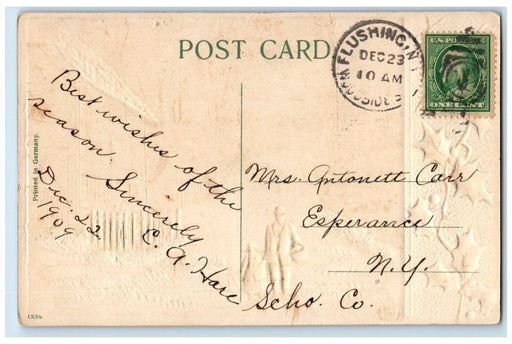 POST CARD
FLUSHING, N.Y.
DEC 23
10 AM
WOODSIDE
U.S. POSTAGE
ONE CENT
Best wishes of the
season.
Sincerely
E. A. Hare
Dec. 22
1909
Mrs. Antonett Carr
Esperance
N.Y.
Scho. Co.
Printed in Germany.